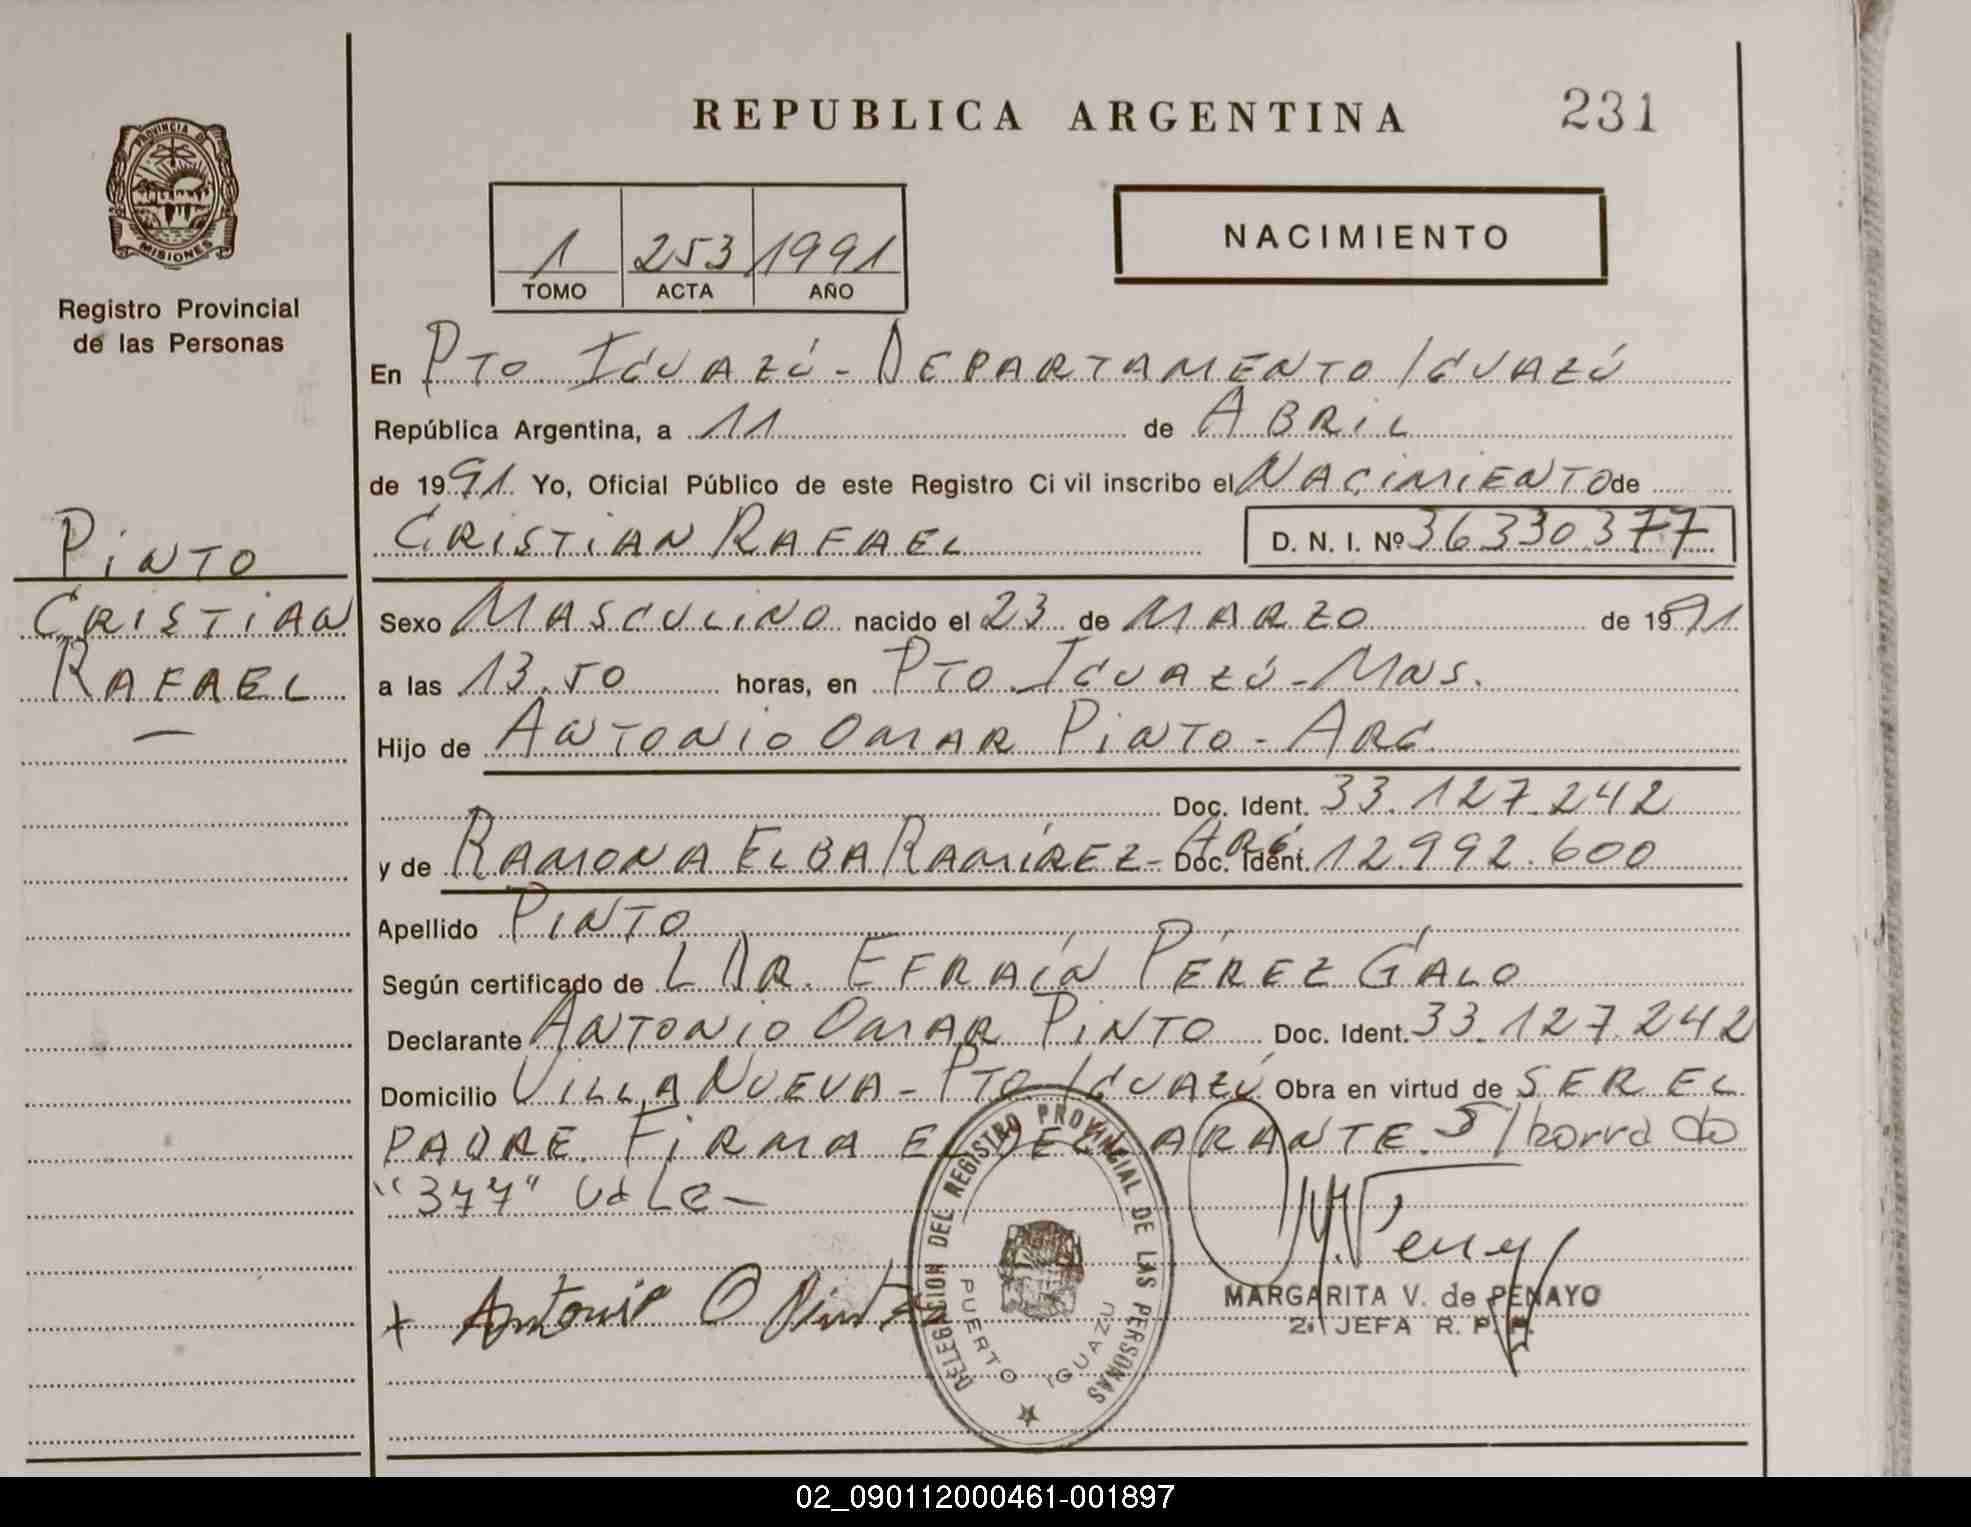 REPUBLICA ARGENTINA
231
PROVINCIA DE
MISIONES
Registro Provincial
de las Personas
1 253 1991
TOMO ACTA AÑO
NACIMIENTO
En PTO IGUAZÚ - DEPARTAMENTO IGUAZÚ
República Argentina, a 11 de ABRIL
de 1991. Yo, Oficial Público de este Registro Civil inscribo el NACIMIENTO de
CRISTIAN RAFAEL D. N. I. Nº 36330377
PINTO
CRISTIAN
RAFAEL
—
Sexo MASCULINO nacido el 23 de MARZO de 1991
a las 13.50 horas, en PTO. IGUAZÚ - MNS.
Hijo de ANTONIO OMAR PINTO - ARG
Doc. Ident. 33.127.242
y de RAMONA ELBA RAMÍREZ - ARG. Doc. Ident. 12.992.600
Apellido PINTO
Según certificado de L DR. EFRAÍN PÉREZ GALO
Declarante ANTONIO OMAR PINTO Doc. Ident. 33.127.242
Domicilio VILLA NUEVA - PTO IGUAZÚ Obra en virtud de SER EL
PADRE. FIRMA EL DECLARANTE. S/borrado
"377" Vale -
Antonio O Pinto
DELEGACION DEL REGISTRO PROVINCIAL DE LAS PERSONAS
PUERTO IGUAZU
MARGARITA V. de PENAYO
2ª JEFA R. P. P.
02_090112000461-001897